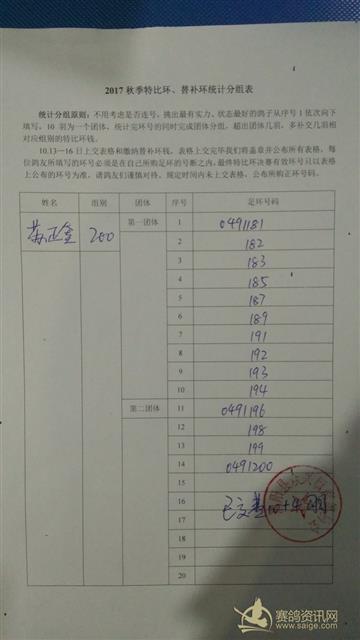 2017 秋季特比环、替补环统计分组表
统计分组原则：不用考虑是否连号，挑出最有实力、状态最好的鸽子从序号 1 依次向下
填写，10 羽为一个团体，统计完环号的同时完成团体分组，超出团体几羽，多补交几羽相
对应组别的特比环钱。
10.13—16 日上交表格和缴纳替补环钱，表格上交完毕我们将盖章并公布所有表格，每
位鸽友所填写的环号必须是在自己所购足环的号断之内，最终特比环决赛有效环号只以表格
上公布的环号为准，请鸽友们谨慎对待，规定时间内未上交表格，公布所购正环号码。
姓名 组别 团体 序号 足环号码
苏正金 200 第一团体 1 0491181
2 182
3 183
4 185
5 187
6 189
7 191
8 192
9 193
10 194
第二团体 11 0491196
12 198
13 199
14 0491200
15
16 已交
17
18
19
20
赛鸽资讯网
www.saige.com